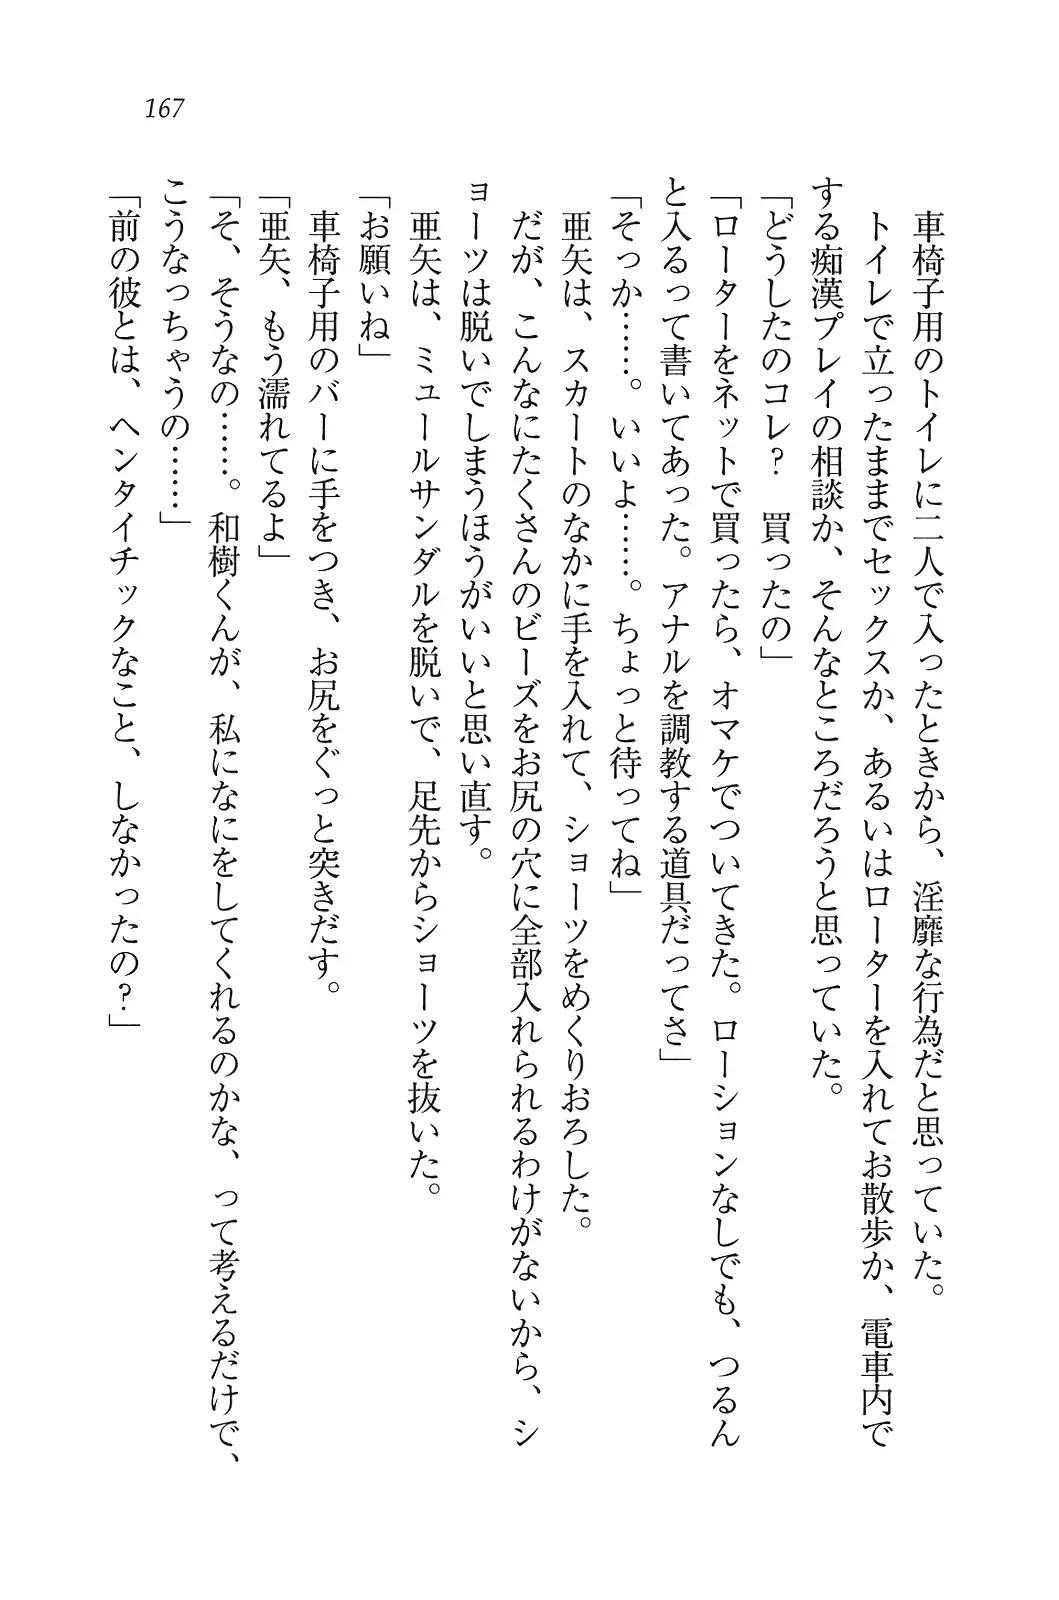 167
　車椅子用のトイレに二人で入ったときから、淫靡な行為だと思っていた。
　トイレで立ったままでセックスか、あるいはローターを入れてお散歩か、電車内で
する痴漢プレイの相談か、そんなところだろうと思っていた。
「どうしたのコレ？　買ったの」
「ローターをネットで買ったら、オマケでついてきた。ローションなしでも、つるん
と入るって書いてあった。アナルを調教する道具だってさ」
「そっか……。いいよ……。ちょっと待ってね」
　亜矢は、スカートのなかに手を入れて、ショーツをめくりおろした。
　だが、こんなにたくさんのビーズをお尻の穴に全部入れられるわけがないから、シ
ョーツは脱いでしまうほうがいいと思い直す。
　亜矢は、ミュールサンダルを脱いで、足先からショーツを抜いた。
「お願いね」
　車椅子用のバーに手をつき、お尻をぐっと突きだす。
「亜矢、もう濡れてるよ」
「そ、そうなの……。和樹くんが、私になにをしてくれるのかな、って考えるだけで、
こうなっちゃうの……」
「前の彼とは、ヘンタイチックなこと、しなかったの？」